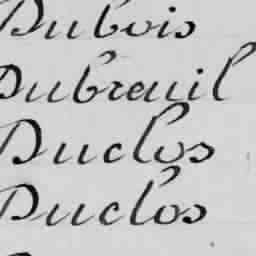 Dubois
Dubreuil
Duclos
Duclos